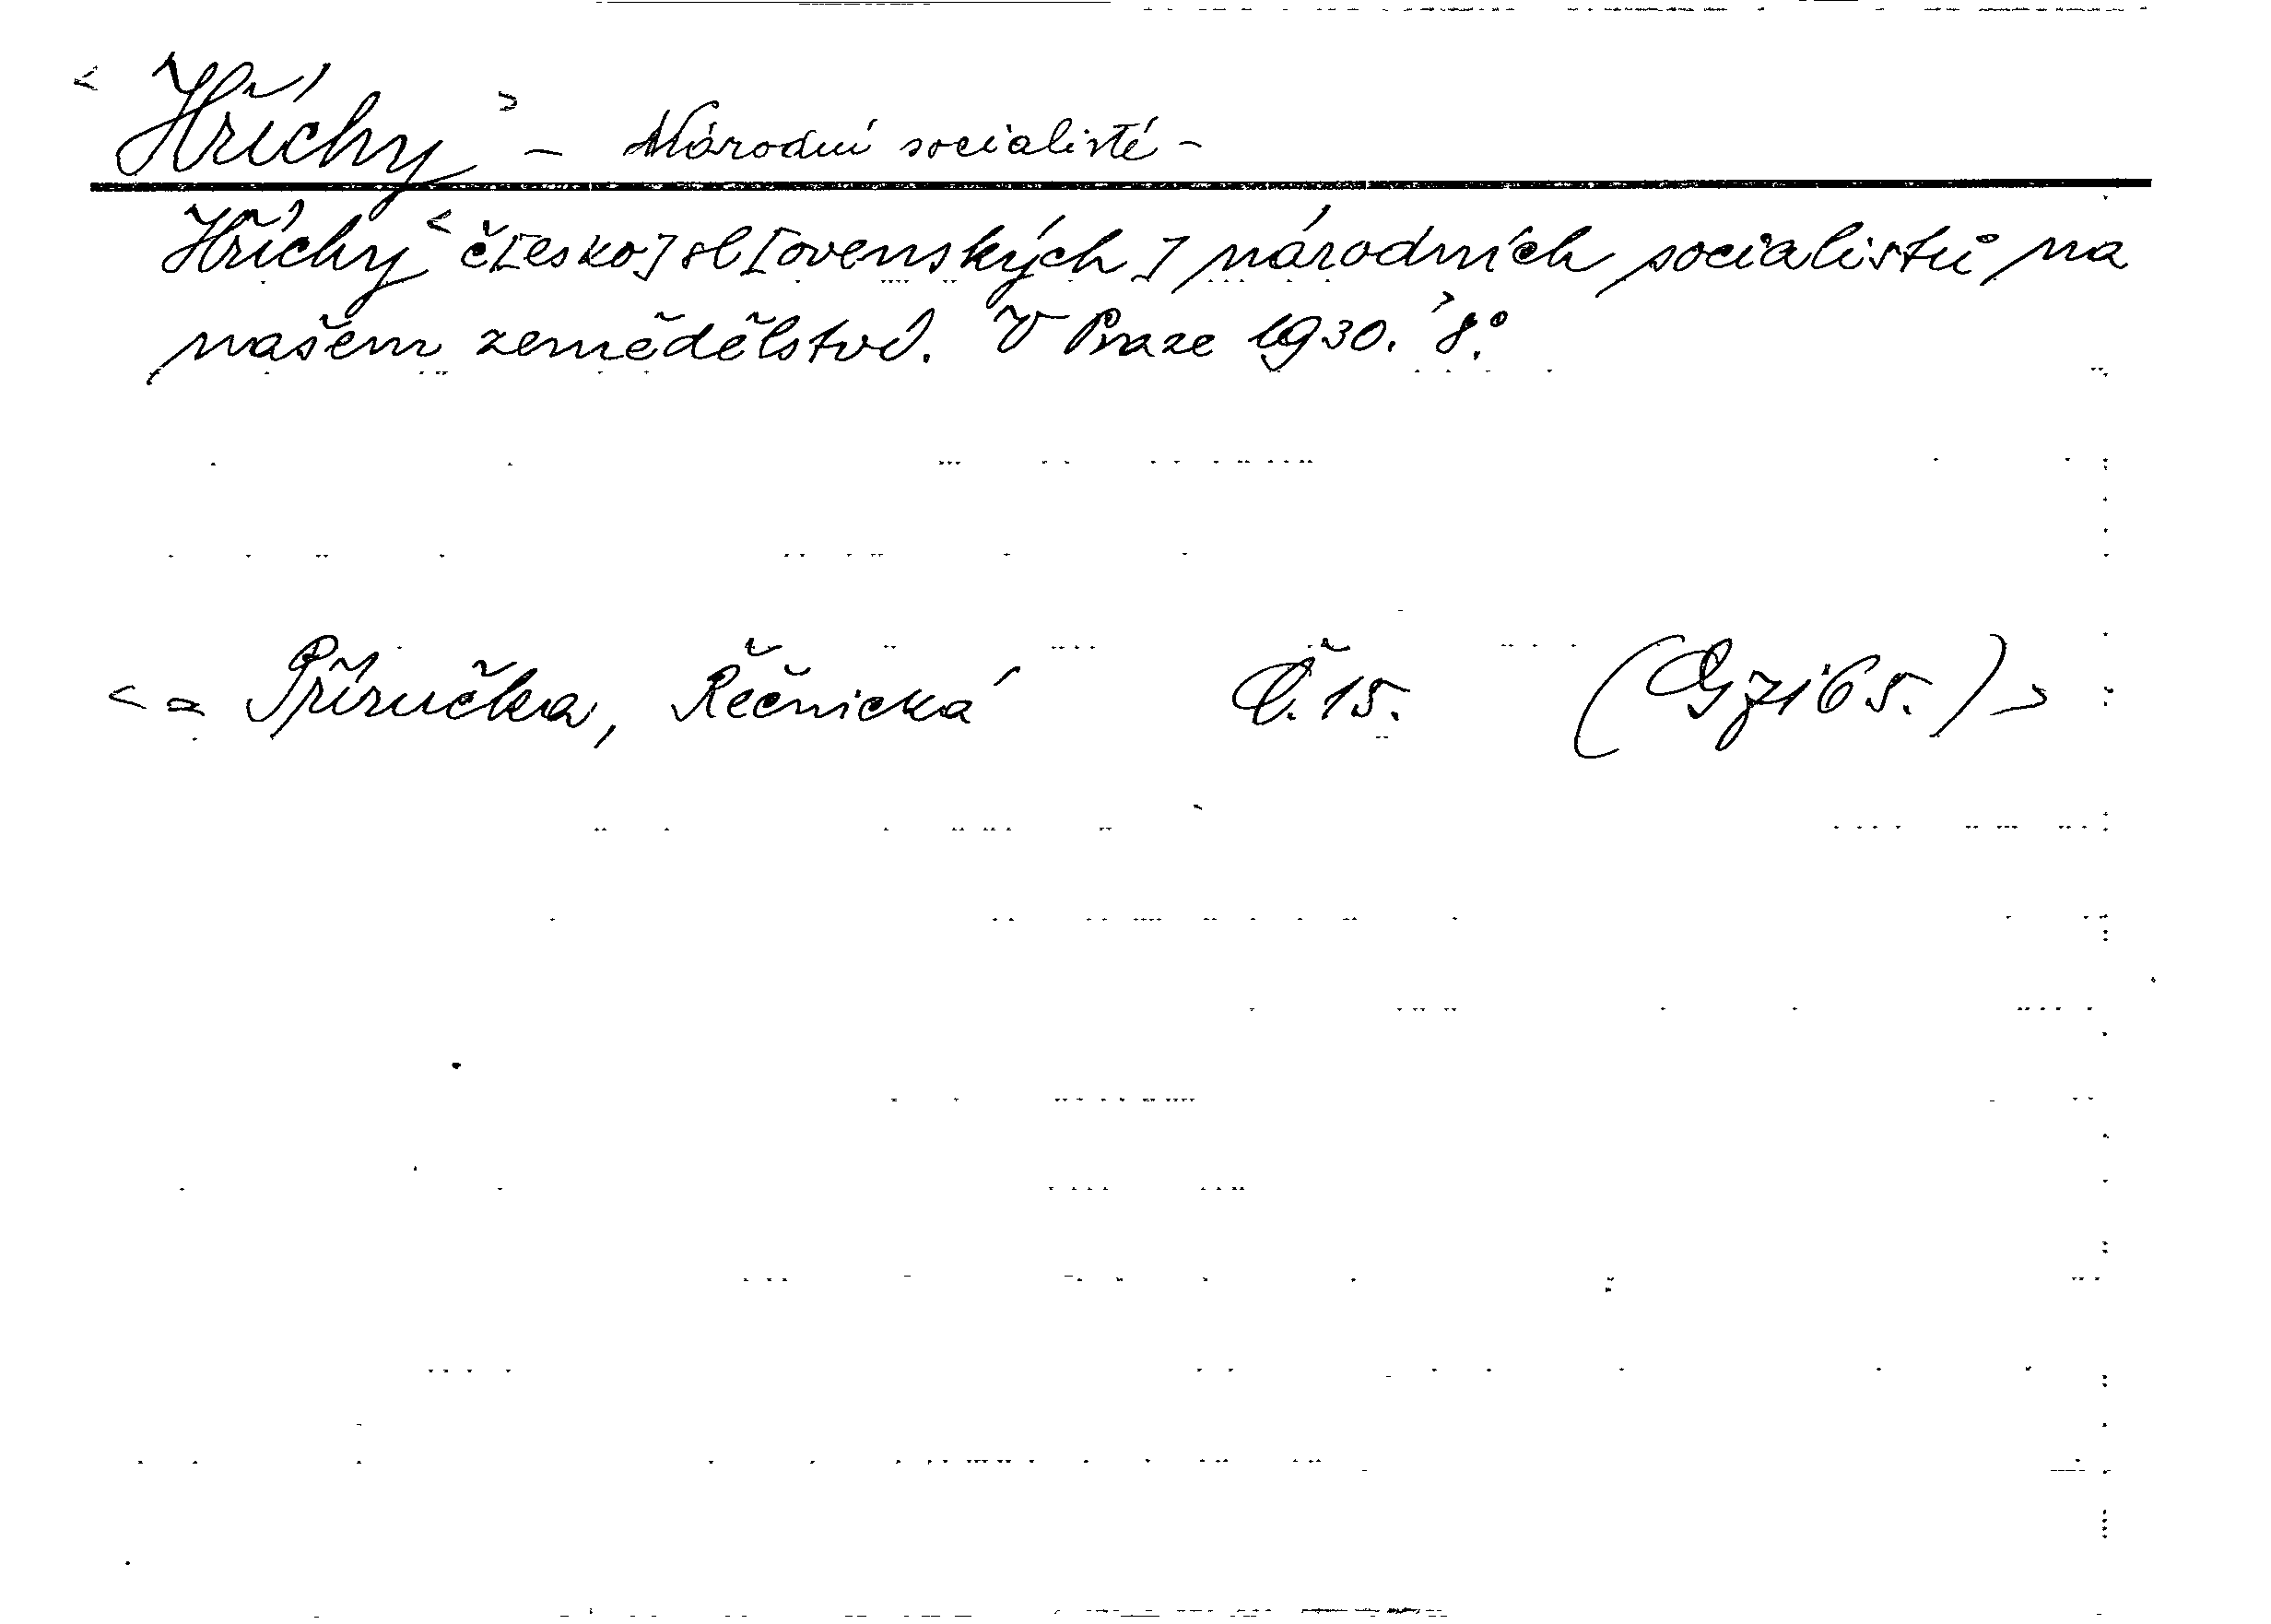 < Hříchy > – Národní socialisté –
Hříchy < č[esko]sl[ovenských] národních socialistů na
našem zemědělství. V Praze 1930. > 8°.
< = Příručka, Řečnická Č. 15. (G 7165.) >